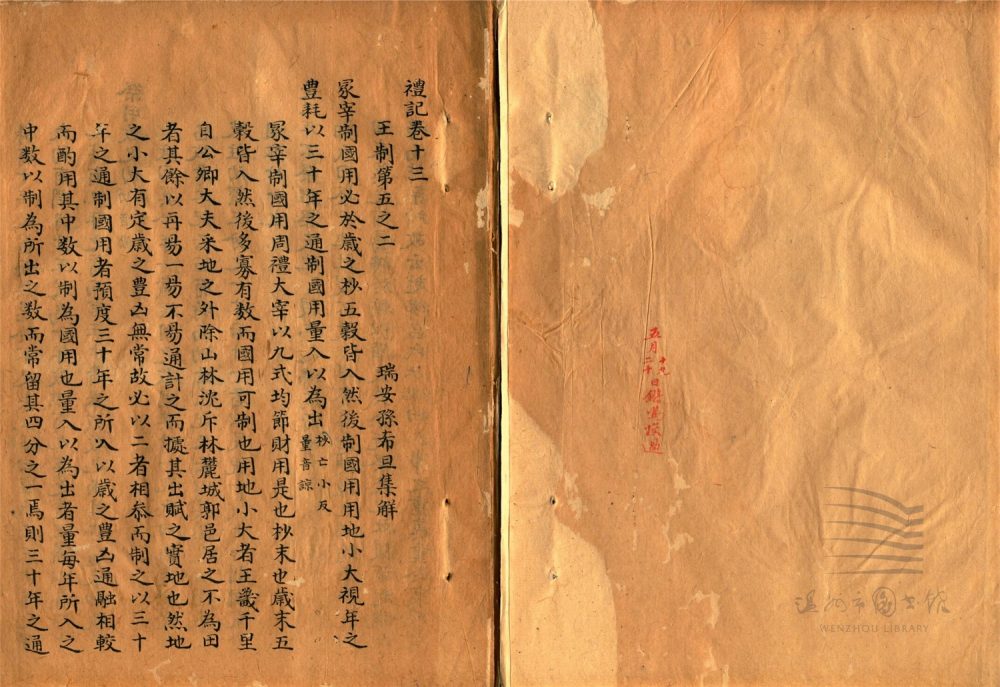 五月十九二十日鏘鳴挍過
禮記卷十三
王制第五之二 瑞安孫希旦集解
冢宰制國用必於歲之杪五穀皆入然後制國用用地小大視年之
豐耗以三十年之通制國用量入以為出杪亡小反量音諒
冢宰制國用周禮大宰以九式均節財用是也杪末也歲末五
穀皆入然後多寡有数而國用可制也用地小大者王畿千里
自公卿大夫采地之外除山林沈斥林麓城郭邑居之不為田
者其餘以再易一易不易通計之而據其出賦之實地也然地
之小大有定歲之豐凶無常故必以二者相叅而制之以三十
年之通制國用者預度三十年之所入以歲之豐凶通融相較
而酌用其中数以制為國用也量入以為出者量每年所入之
中数以制為所出之数而常留其四分之一焉則三十年之通
温州市图书馆
WENZHOU LIBRARY